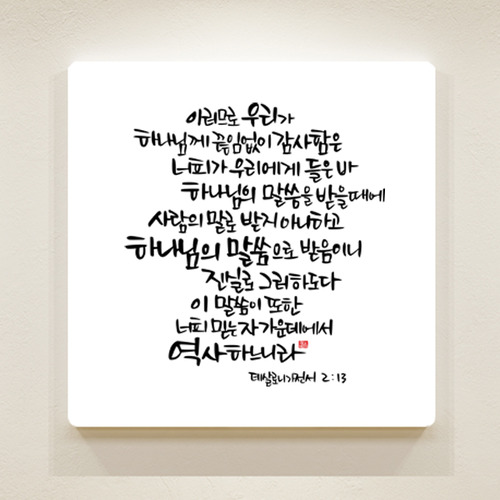 이러므로 우리가
하나님께 끊임없이 감사함은
너희가 우리에게 들은 바
하나님의 말씀을 받을 때에
사람의 말로 받지 아니하고
하나님의 말씀으로 받음이니
진실로 그러하도다
이 말씀이 또한
너희 믿는 자 가운데에서
역사하느니라
데살로니가전서 2:13